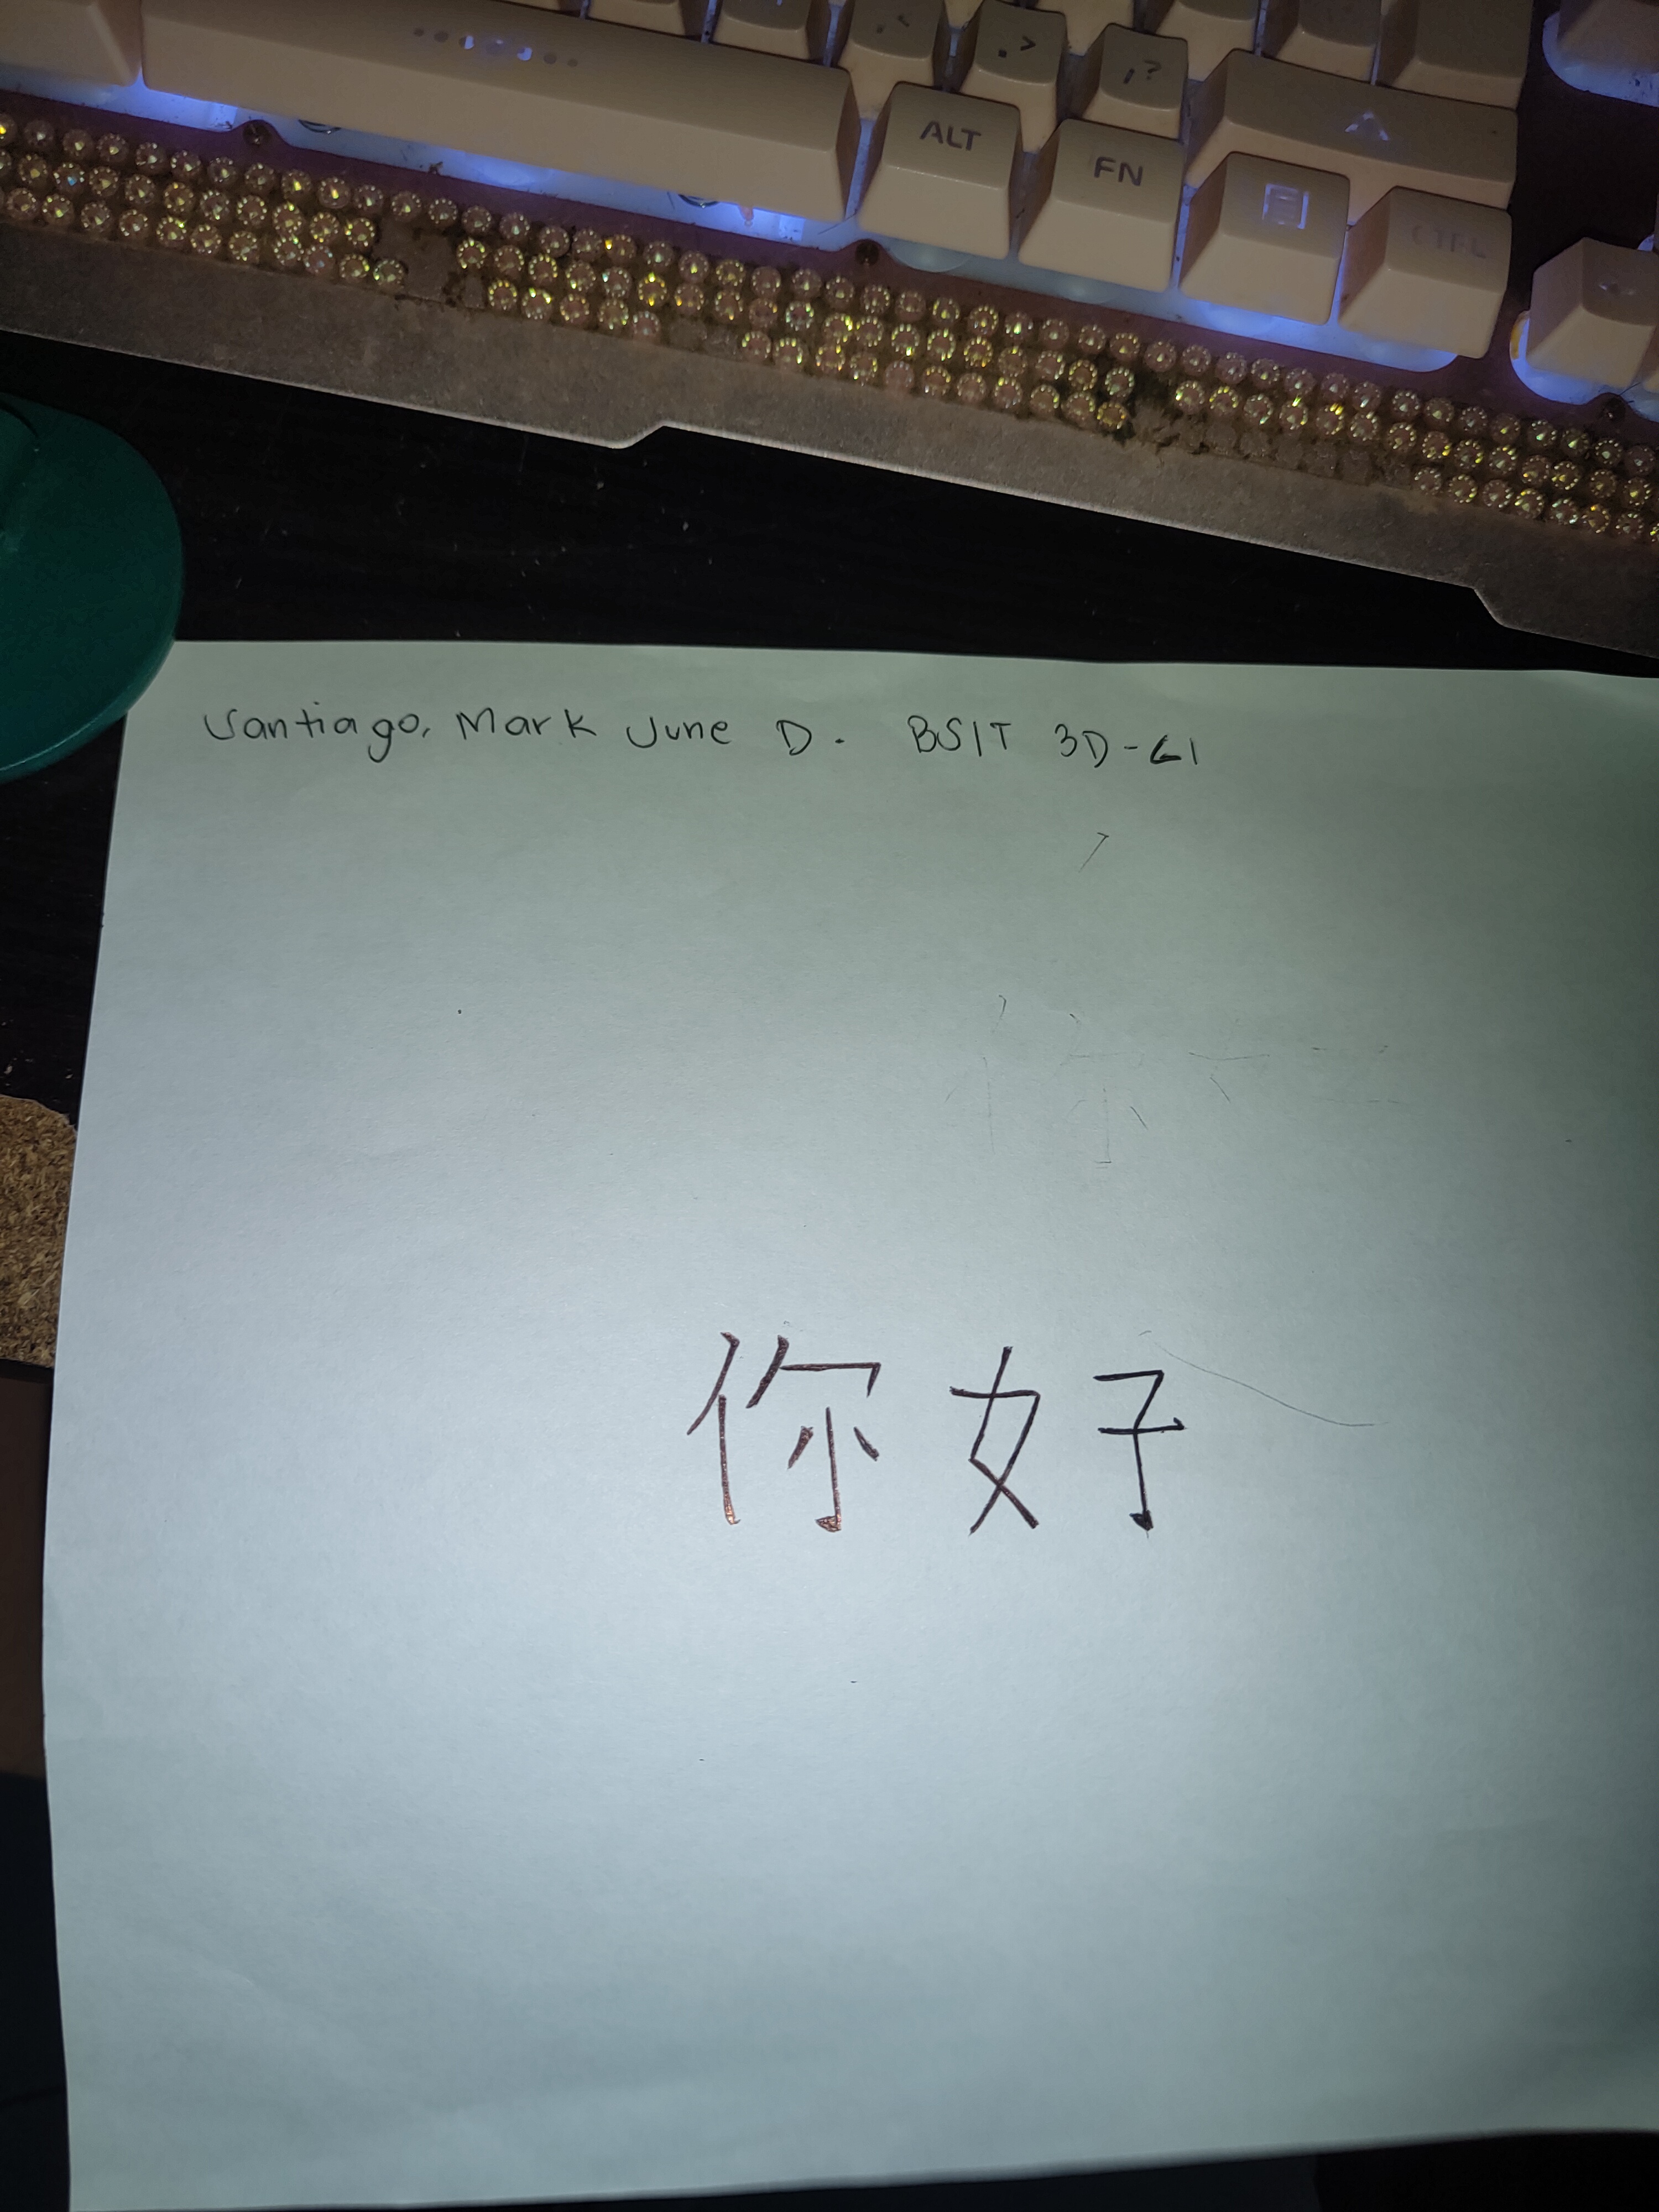 ALT
FN
CTRL
Santiago, Mark June D. BSIT 3D-G1
你好